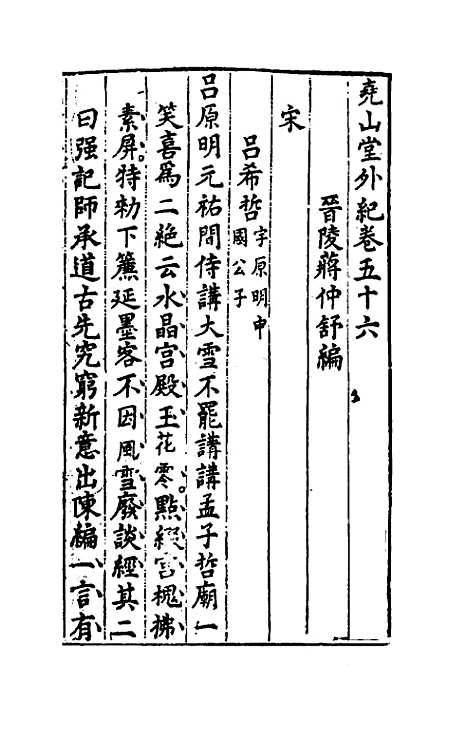 堯山堂外紀卷五十六
晉陵蔣仲舒編
宋
呂希哲字原明申國公子
呂原明元祐間侍講大雪不罷講講孟子哲廟一
笑喜爲二絶云水晶宮殿玉花零點綴宮槐拂
素屏特勑下簾延墨客不因風雪廢談經其二
曰强記師承道古先究窮新意出陳編一言有